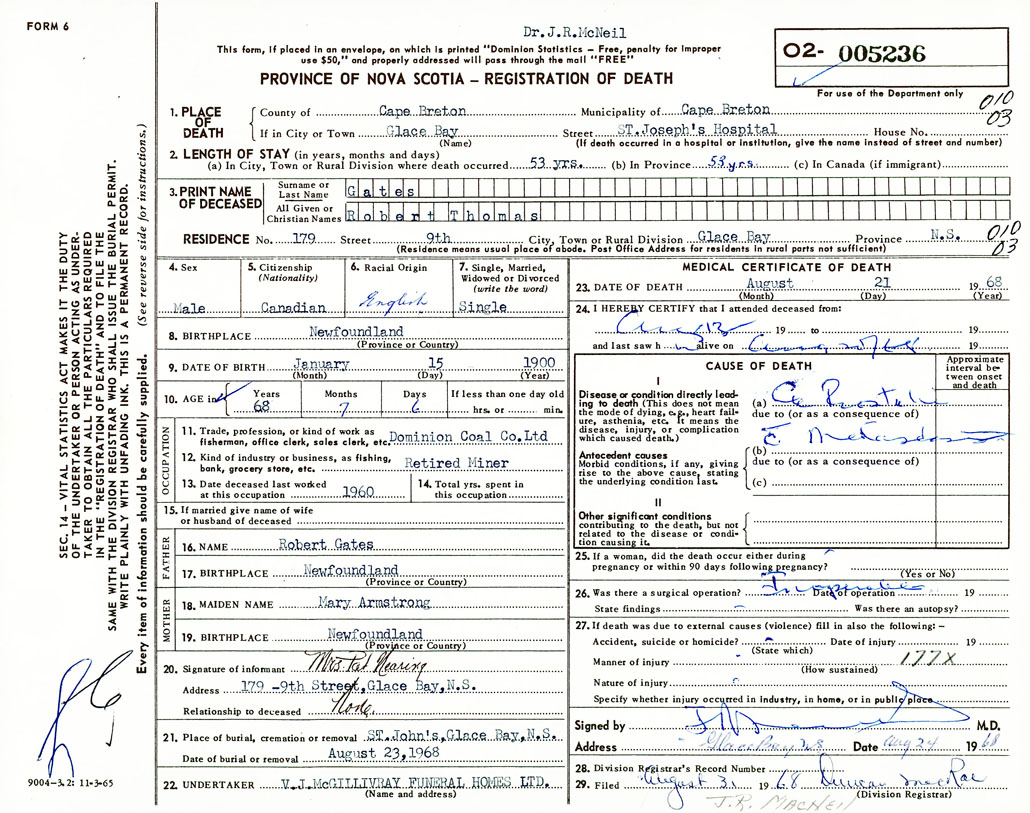 FORM 6
Dr.J.R.McNeil
This form, if placed in an envelope, on which is printed "Dominion Statistics – Free, penalty for improper
use $50," and properly addressed will pass through the mail "FREE"
PROVINCE OF NOVA SCOTIA – REGISTRATION OF DEATH
O2- 005236
For use of the Department only
010
03
1. PLACE OF DEATH
County of Cape Breton Municipality of Cape Breton
If in City or Town Glace Bay Street ST.Joseph's Hospital House No.
(Name) (If death occurred in a hospital or institution, give the name instead of street and number)
2. LENGTH OF STAY (in years, months and days)
(a) In City, Town or Rural Division where death occurred 53 yrs. (b) In Province 53yrs. (c) In Canada (if immigrant)
3. PRINT NAME OF DECEASED
Surname or Last Name Gates
All Given or Christian Names Robert Thomas
RESIDENCE No. 179 Street 9th City, Town or Rural Division Glace Bay Province N.S.
010
03
(Residence means usual place of abode. Post Office Address for residents in rural parts not sufficient)
4. Sex
Male
5. Citizenship
(Nationality)
Canadian
6. Racial Origin
English
7. Single, Married,
Widowed or Divorced
(write the word)
Single
8. BIRTHPLACE Newfoundland
(Province or Country)
9. DATE OF BIRTH January 15 1900
(Month) (Day) (Year)
10. AGE in Years Months Days If less than one day old
68 7 6 hrs. or min.
OCCUPATION
11. Trade, profession, or kind of work as
fisherman, office clerk, sales clerk, etc. Dominion Coal Co.Ltd
12. Kind of industry or business, as fishing,
bank, grocery store, etc. Retired Miner
13. Date deceased last worked
at this occupation 1960
14. Total yrs. spent in
this occupation
15. If married give name of wife
or husband of deceased
FATHER
16. NAME Robert Gates
17. BIRTHPLACE Newfoundland
(Province or Country)
MOTHER
18. MAIDEN NAME Mary Armstrong
19. BIRTHPLACE Newfoundland
(Province or Country)
20. Signature of informant Mrs Pat Nearing
Address 179 -9th Street,Glace Bay,N.S.
Relationship to deceased None.
21. Place of burial, cremation or removal ST.John's,Glace Bay,N.S.
Date of burial or removal August 23,1968
22. UNDERTAKER V.J.McGILLIVRAY FUNERAL HOMES LTD.
(Name and address)
MEDICAL CERTIFICATE OF DEATH
23. DATE OF DEATH August 21 1968
(Month) (Day) (Year)
24. I HEREBY CERTIFY that I attended deceased from:
19 to 19
and last saw h alive on 19
CAUSE OF DEATH
Approximate
interval be-
tween onset
and death
I
Disease or condition directly lead-
ing to death (This does not mean
the mode of dying, e.g., heart fail-
ure, asthenia, etc. It means the
disease, injury, or complication
which caused death.)
(a) Ca
due to (or as a consequence of)
Antecedent causes
Morbid conditions, if any, giving
rise to the above cause, stating
the underlying condition last.
(b)
due to (or as a consequence of)
(c)
II
Other significant conditions
contributing to the death, but not
related to the disease or condi-
tion causing it.
25. If a woman, did the death occur either during
pregnancy or within 90 days following pregnancy?
(Yes or No)
26. Was there a surgical operation? Date of operation 19
State findings Was there an autopsy?
27. If death was due to external causes (violence) fill in also the following: –
Accident, suicide or homicide? Date of injury 19
(State which)
Manner of injury 177X
(How sustained)
Nature of injury
Specify whether injury occurred in industry, in home, or in public place
Signed by M.D.
Address Glace Bay NS Date Aug 24 1968
28. Division Registrar's Record Number
29. Filed August 31 1968 Duncan MacRae
(Division Registrar)
J.R. MACNEIL
SEC. 14 – VITAL STATISTICS ACT MAKES IT THE DUTY
OF THE UNDERTAKER OR PERSON ACTING AS UNDER-
TAKER TO OBTAIN ALL THE PARTICULARS REQUIRED
IN THE "REGISTRATION OF DEATH" AND TO FILE THE
SAME WITH THE DIVISION REGISTRAR WHO SHALL ISSUE THE BURIAL PERMIT.
WRITE PLAINLY WITH UNFADING INK. THIS IS A PERMANENT RECORD.
Every item of information should be carefully supplied. (See reverse side for instructions.)
9004-3.2: 11-3-65